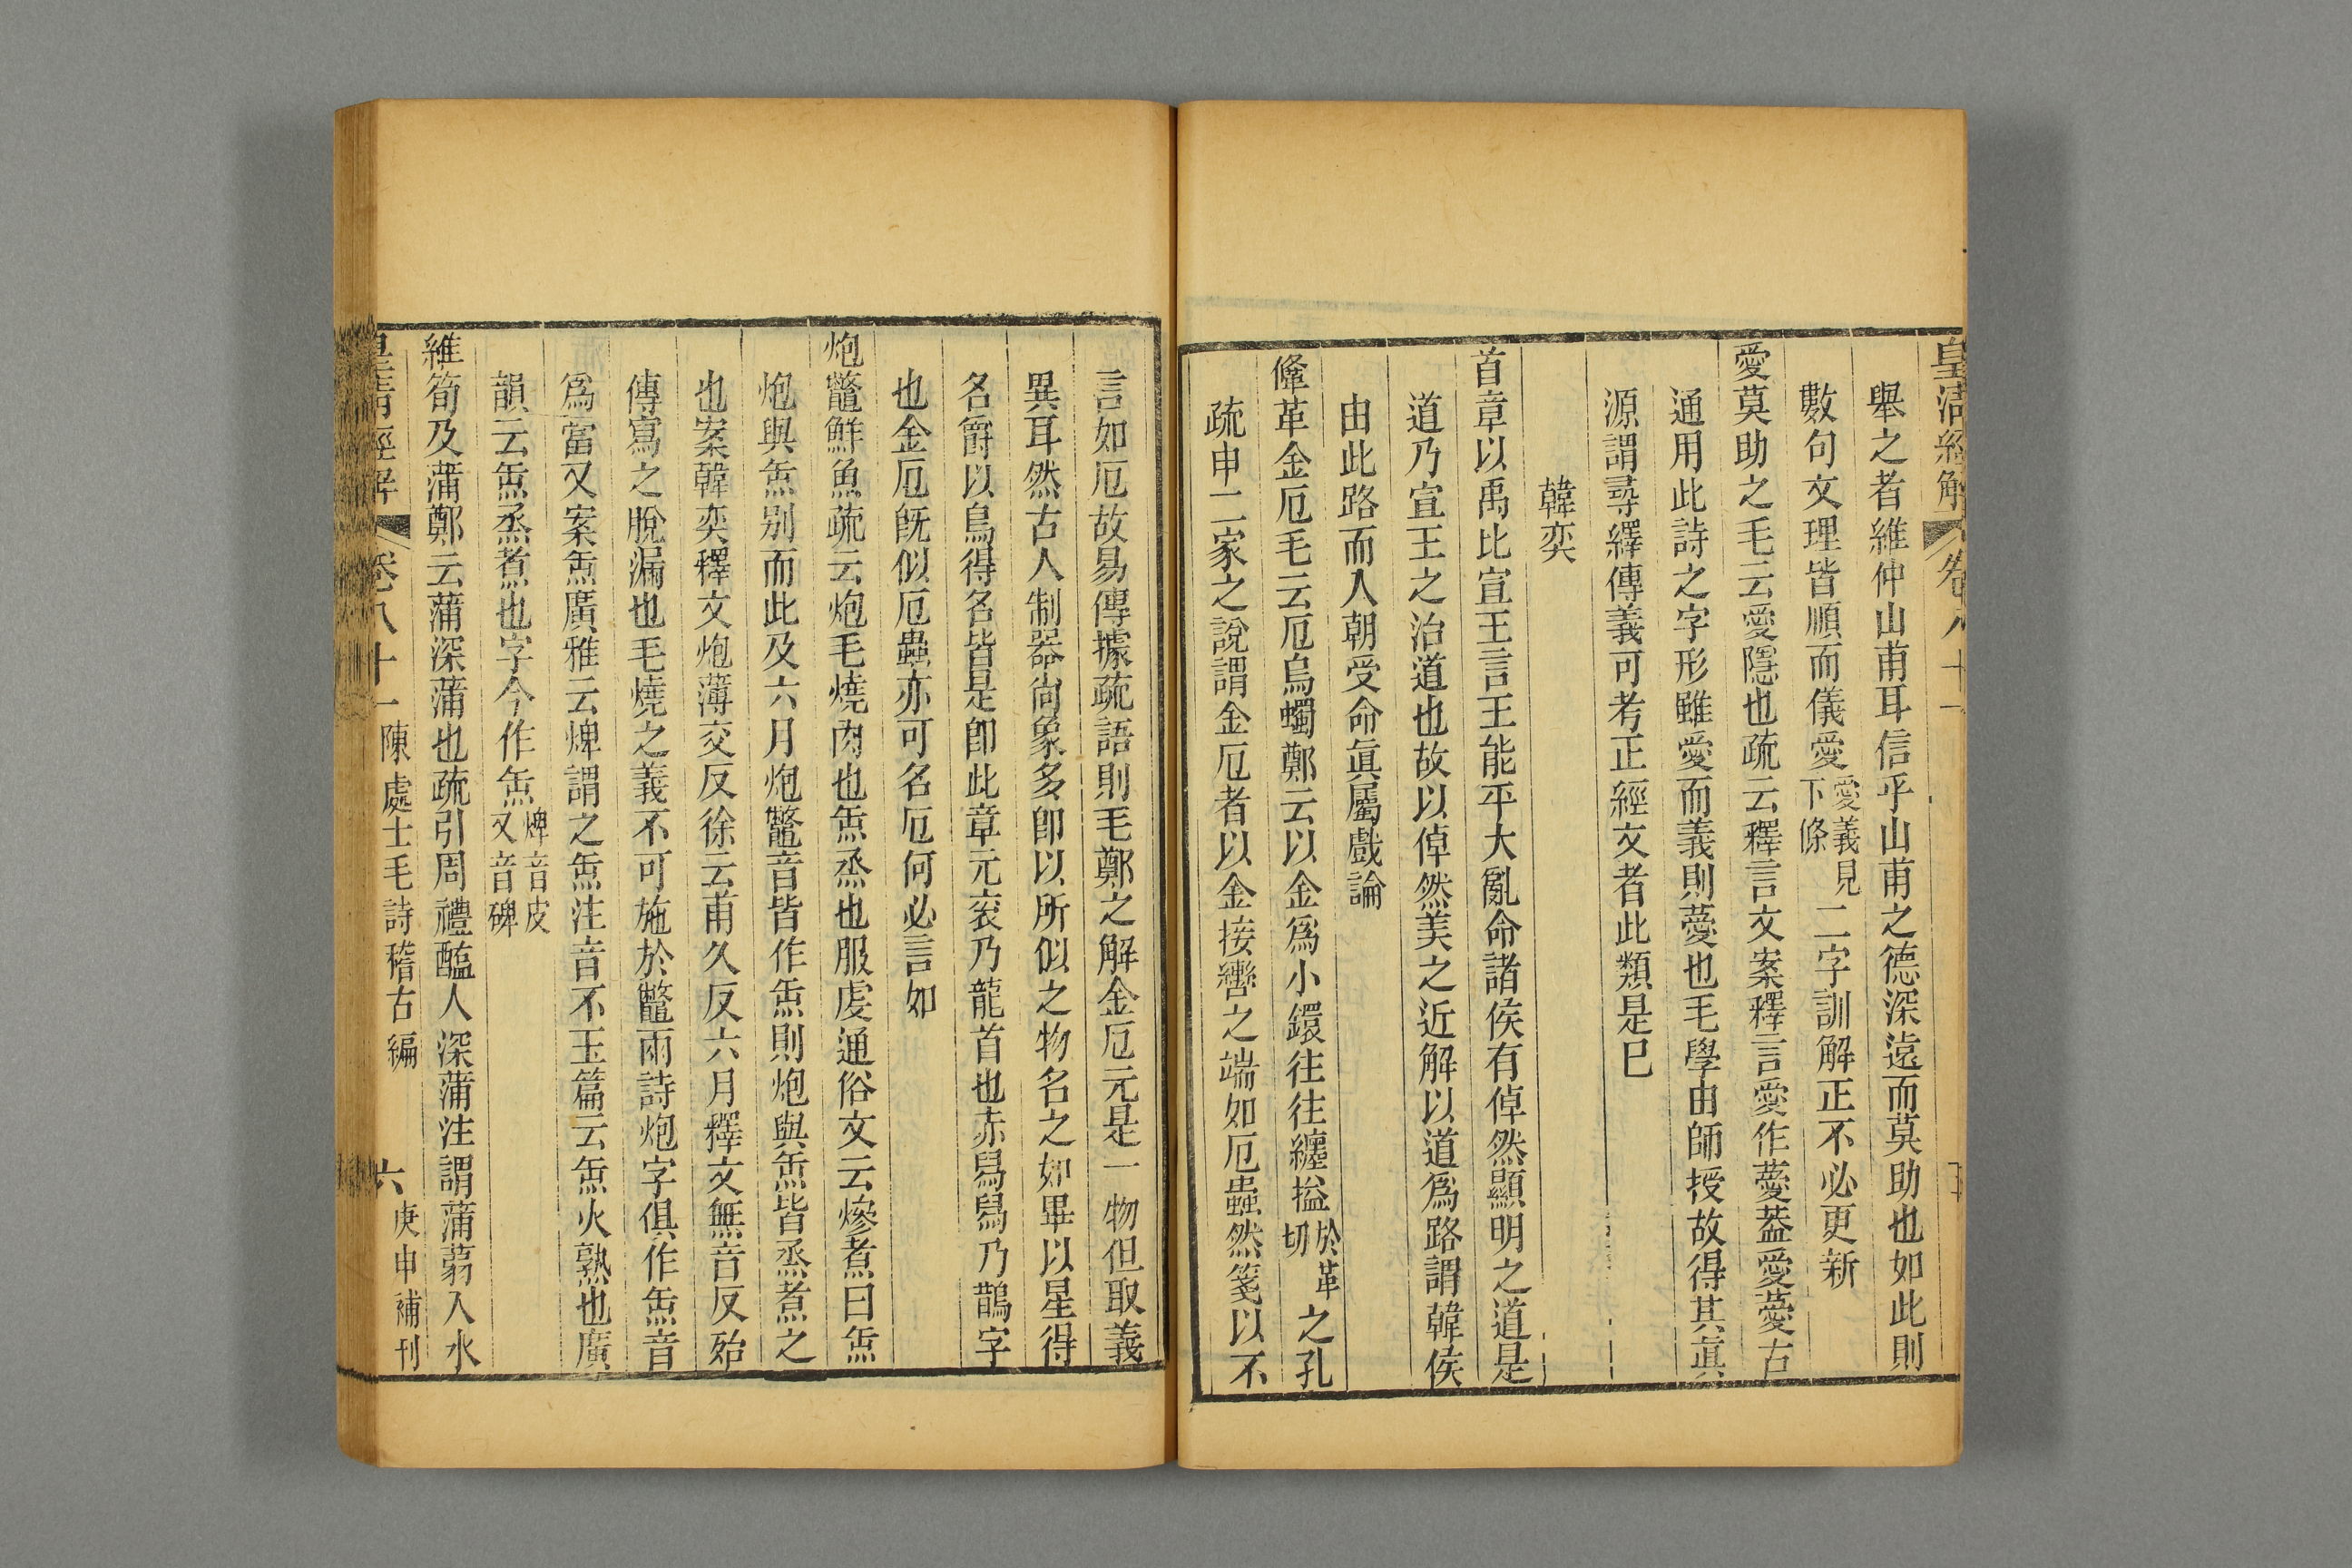 皇清經解 卷八十一
舉之者維仲山甫耳信乎山甫之德深遠而莫助也如此則
數句文理皆順而儀愛愛義見下條二字訓解正不必更新
愛莫助之毛云愛隱也疏云釋言文案釋言愛作薆葢愛薆古
通用此詩之字形雖愛而義則薆也毛學由師授故得其眞
源謂尋繹傳義可考正經文者此類是巳
韓奕
首章以禹比宣王言王能平大亂命諸侯有倬然顯明之道是
道乃宣王之治道也故以倬然美之近解以道爲路謂韓侯
由此路而入朝受命眞屬戲論
鞗革金厄毛云厄烏蠋鄭云以金爲小鐶往往纏搤於革切之孔
疏申二家之說謂金厄者以金接轡之端如厄蟲然箋以不
言如厄故易傳據疏語則毛鄭之解金厄元是一物但取義
異耳然古人制器尚象多卽以所似之物名之如畢以星得
名爵以鳥得名皆是卽此章元衮乃龍首也赤舄舄乃鵲字
也金厄旣似厄蟲亦可名厄何必言如
炰鼈鮮魚疏云炰毛燒肉也缹烝也服虔通俗文云燥煮曰缹
炰與缹别而此及六月炰鼈音皆作缹則炰與缹皆烝煮之
也案韓奕釋文炰薄交反徐云甫久反六月釋文無音反殆
傳寫之脫漏也毛燒之義不可施於鼈兩詩炰字俱作缹音
爲當又案缹廣雅云焷謂之缹注音不玉篇云缹火熟也廣
韻云缹烝煮也字今作缹焷音皮又音碑
維筍及蒲鄭云蒲深蒲也疏引周禮醢人深蒲注謂蒲蒻入水
皇清經解 卷八十一 陳處士毛詩稽古編 六 庚申補刊